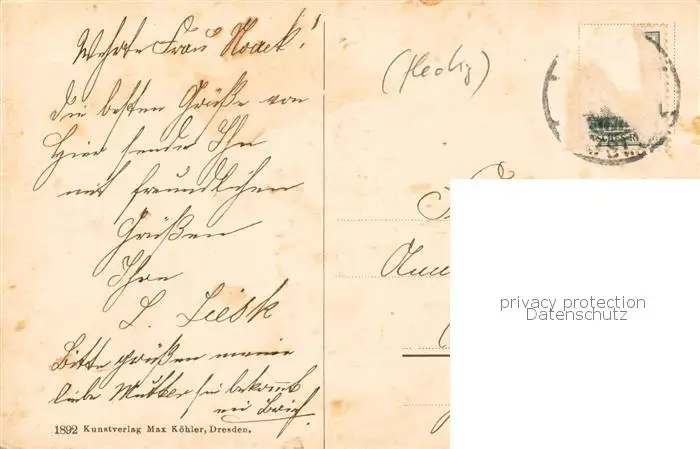 Wehrte Frau Noack!
Die besten Grüße von
Hier sende Ihn
mit freundlichen
Grüßen
Ihre
L. Liesk
Bitte grüßen meine
liebe Mutter sie bekommt
ein Brief.
1892 Kunstverlag Max Köhler, Dresden.
(Hedwig)
privacy protection
Datenschutz